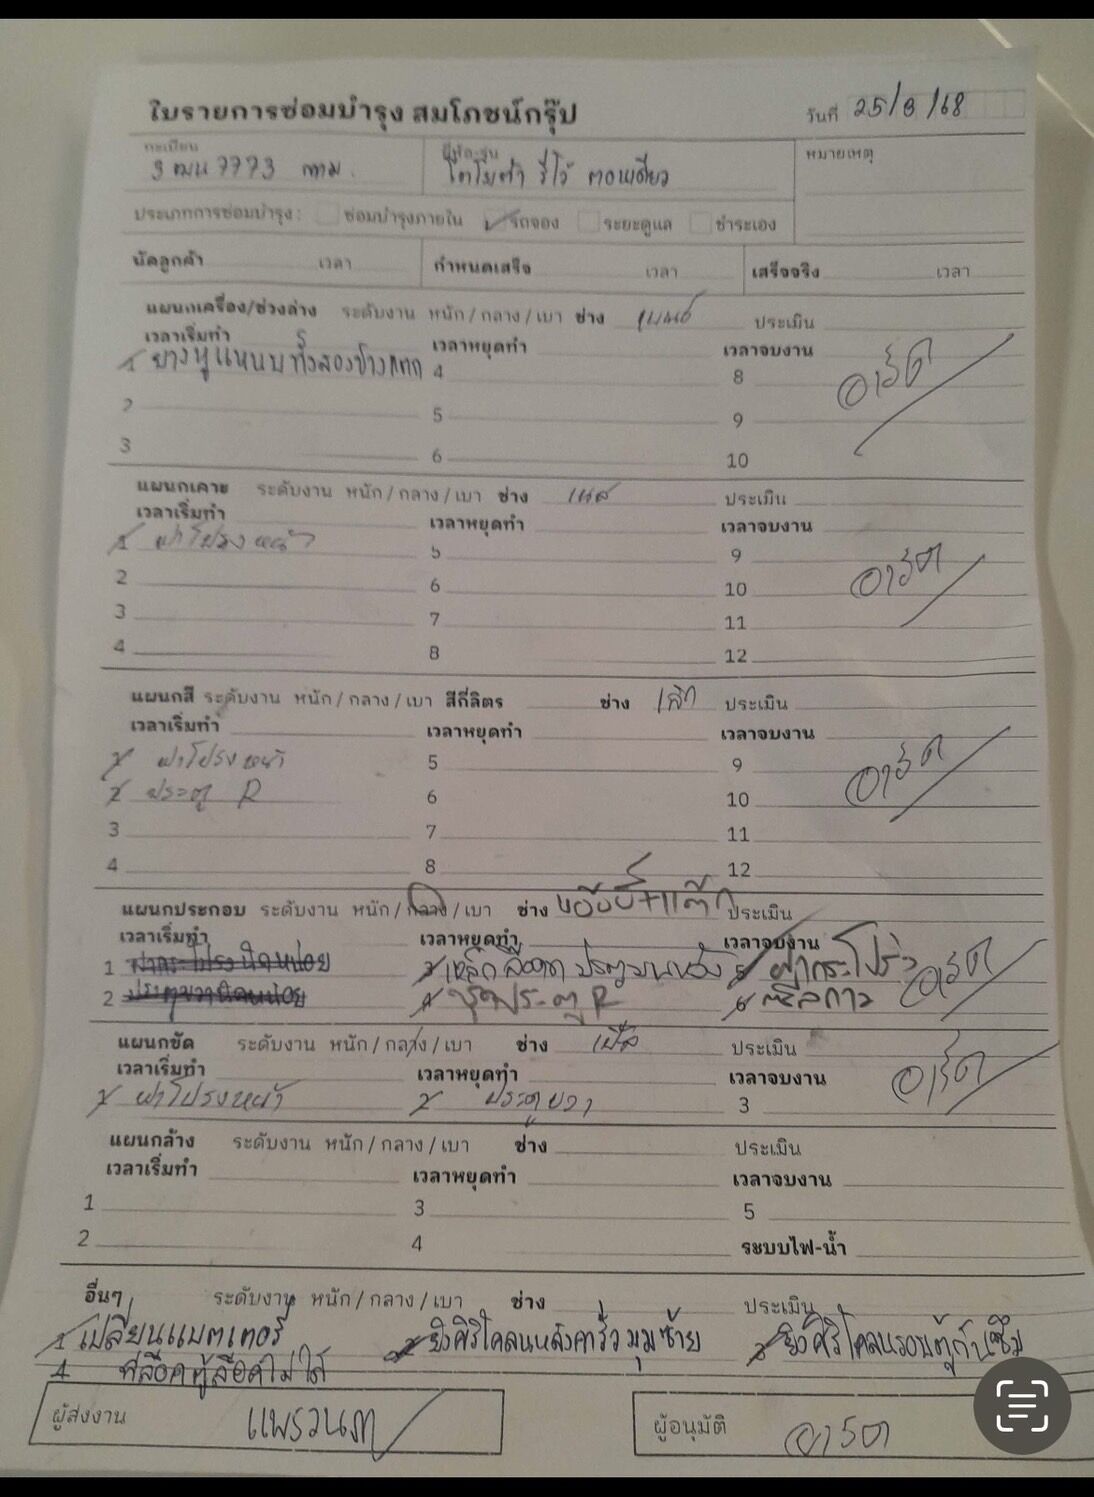 ใบรายการซ่อมบำรุง สมโภชน์กรุ๊ป
วันที่ 25/8/68
ทะเบียน 3 ฒน 7773 กทม.
ยี่ห้อ-รุ่น โตโยต้า รีโว้ ตอนเดียว
หมายเหตุ
ประเภทการซ่อมบำรุง: ซ่อมบำรุงภายใน รถจอง ระยะดูแล ชำระเอง
นัดลูกค้า เวลา กำหนดเสร็จ เวลา เสร็จจริง เวลา
แผนกเครื่อง/ช่วงล่าง ระดับงาน หนัก/กลาง/เบา ช่าง ประเมิน
เวลาเริ่มทำ เวลาหยุดทำ เวลาจบงาน
1 ยางหูแหนบทั้งสองข้างแตก 4 8
2 5 9
3 6 10
อาร์ต
แผนกเคาะ ระดับงาน หนัก/กลาง/เบา ช่าง ประเมิน
เวลาเริ่มทำ เวลาหยุดทำ เวลาจบงาน
1 ฝาโปรงหน้า 5 9
2 6 10
3 7 11
4 8 12
อาร์ต
แผนกสี ระดับงาน หนัก/กลาง/เบา สีกี่ลิตร ช่าง เล็ก ประเมิน
เวลาเริ่มทำ เวลาหยุดทำ เวลาจบงาน
1 ฝาโปรงหน้า 5 9
2 ประตู R 6 10
3 7 11
4 8 12
อาร์ต
แผนกประกอบ ระดับงาน หนัก/กลาง/เบา ช่าง ประเมิน
เวลาเริ่มทำ เวลาหยุดทำ เวลาจบงาน
1 ฝากระโปรงนิดหน่อย 3 เหล็กล็อคฝา 5 ฝากระโปรง
2 ประตูขวานิดหน่อย 4 ชุดประตู R 6 ซีลกาว
อาร์ต
แผนกขัด ระดับงาน หนัก/กลาง/เบา ช่าง ประเมิน
เวลาเริ่มทำ เวลาหยุดทำ เวลาจบงาน
1 ฝาโปรงหน้า 2 ประตูขวา 3
อาร์ต
แผนกล้าง ระดับงาน หนัก/กลาง/เบา ช่าง ประเมิน
เวลาเริ่มทำ เวลาหยุดทำ เวลาจบงาน
1 3 5
2 4 ระบบไฟ-น้ำ
อื่นๆ ระดับงาน หนัก/กลาง/เบา ช่าง ประเมิน
1 เปลี่ยนแบตเตอร์รี่ 2 ยิงศิริโคลนหลังคารั่วมุมซ้าย 3 ยิงศิริโคลนรอบตู้กันซึม
4 ที่ล็อคตู้ล็อคไม่ได้
ผู้ส่งงาน แพรวนภา
ผู้อนุมัติ อาร์ต